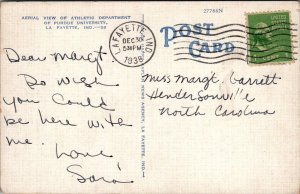 AERIAL VIEW OF ATHLETIC DEPARTMENT
OF PURDUE UNIVERSITY,
LA FAYETTE, IND.—58
27768N
POST
CARD
LAFAYETTE, IND.
DEC 30
5 30 PM
1938
UNITED
Dear Margt.
So wish
you could
be here with
me.
Love
Sara
Miss Margt. Garrett
Hendersonville
North Carolina
NEWS AGENCY, LA FAYETTE, IND.